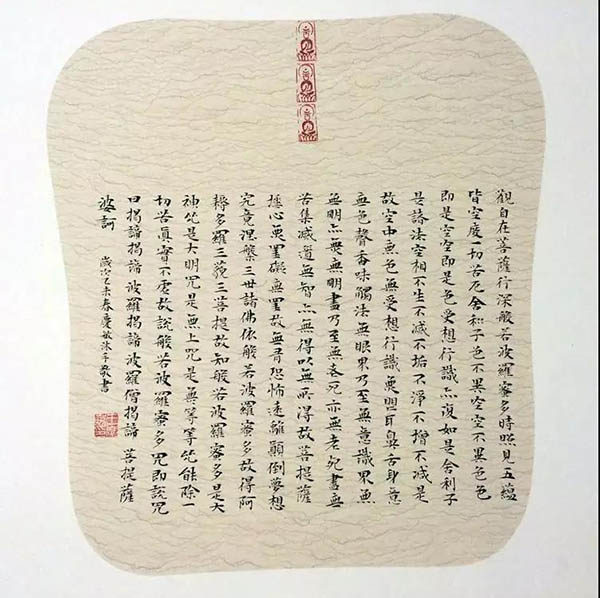 觀自在菩薩行深般若波羅蜜多時照見五蘊
皆空度一切苦厄舍利子色不異空空不異色色
即是空空即是色受想行識亦復如是舍利子
是諸法空相不生不滅不垢不淨不增不減是
故空中無色無受想行識無眼耳鼻舌身意
無色聲香味觸法無眼界乃至無意識界無
無明亦無無明盡乃至無老死亦無老死盡無
苦集滅道無智亦無得以無所得故菩提薩
埵心無罣礙無罣故無有恐怖遠離顛倒夢想
究竟涅槃三世諸佛依般若波羅蜜多故得阿
耨多羅三藐三菩提故知般若波羅蜜多是大
神咒是大明咒是無上咒是無等等咒能除一
切苦真實不虛故說般若波羅蜜多咒即說咒
曰揭諦揭諦波羅揭諦波羅僧揭諦菩提薩
婆訶
歲次乙未春慶敏沐手敬書